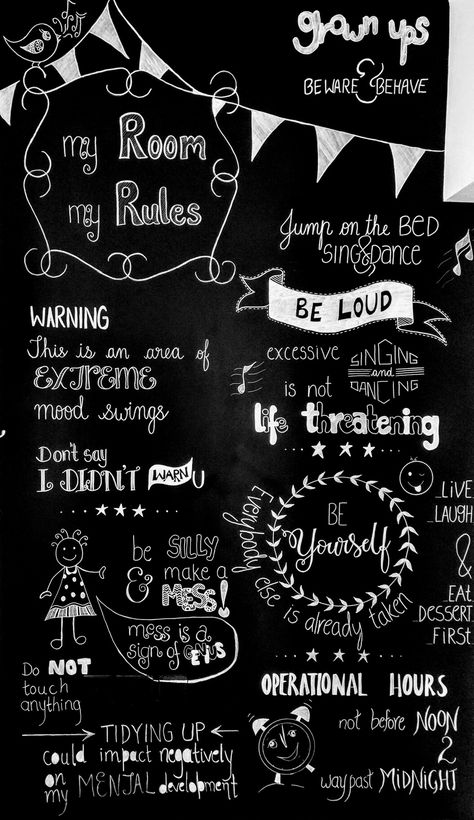 grown ups
BEWARE & BEHAVE
my Room
my Rules
Jump on the BED
SING & DANCE
BE LOUD
WARNING
This is an area of
EXTREME
mood swings
excessive SINGING
and
DANCING
is not
life threatening
Don't say
I DIDN'T WARN U
be SILLY
& make a
MESS!
mess is a
sign of GENIUS
Do NOT
touch
anything
BE
Yourself
Everybody else is already taken
LIVE
LAUGH
&
EAT
DESSERT
FIRST
TIDYING UP
could impact negatively
on
my MENTAL development
OPERATIONAL HOURS
not before NOON
2
way past MIDNIGHT